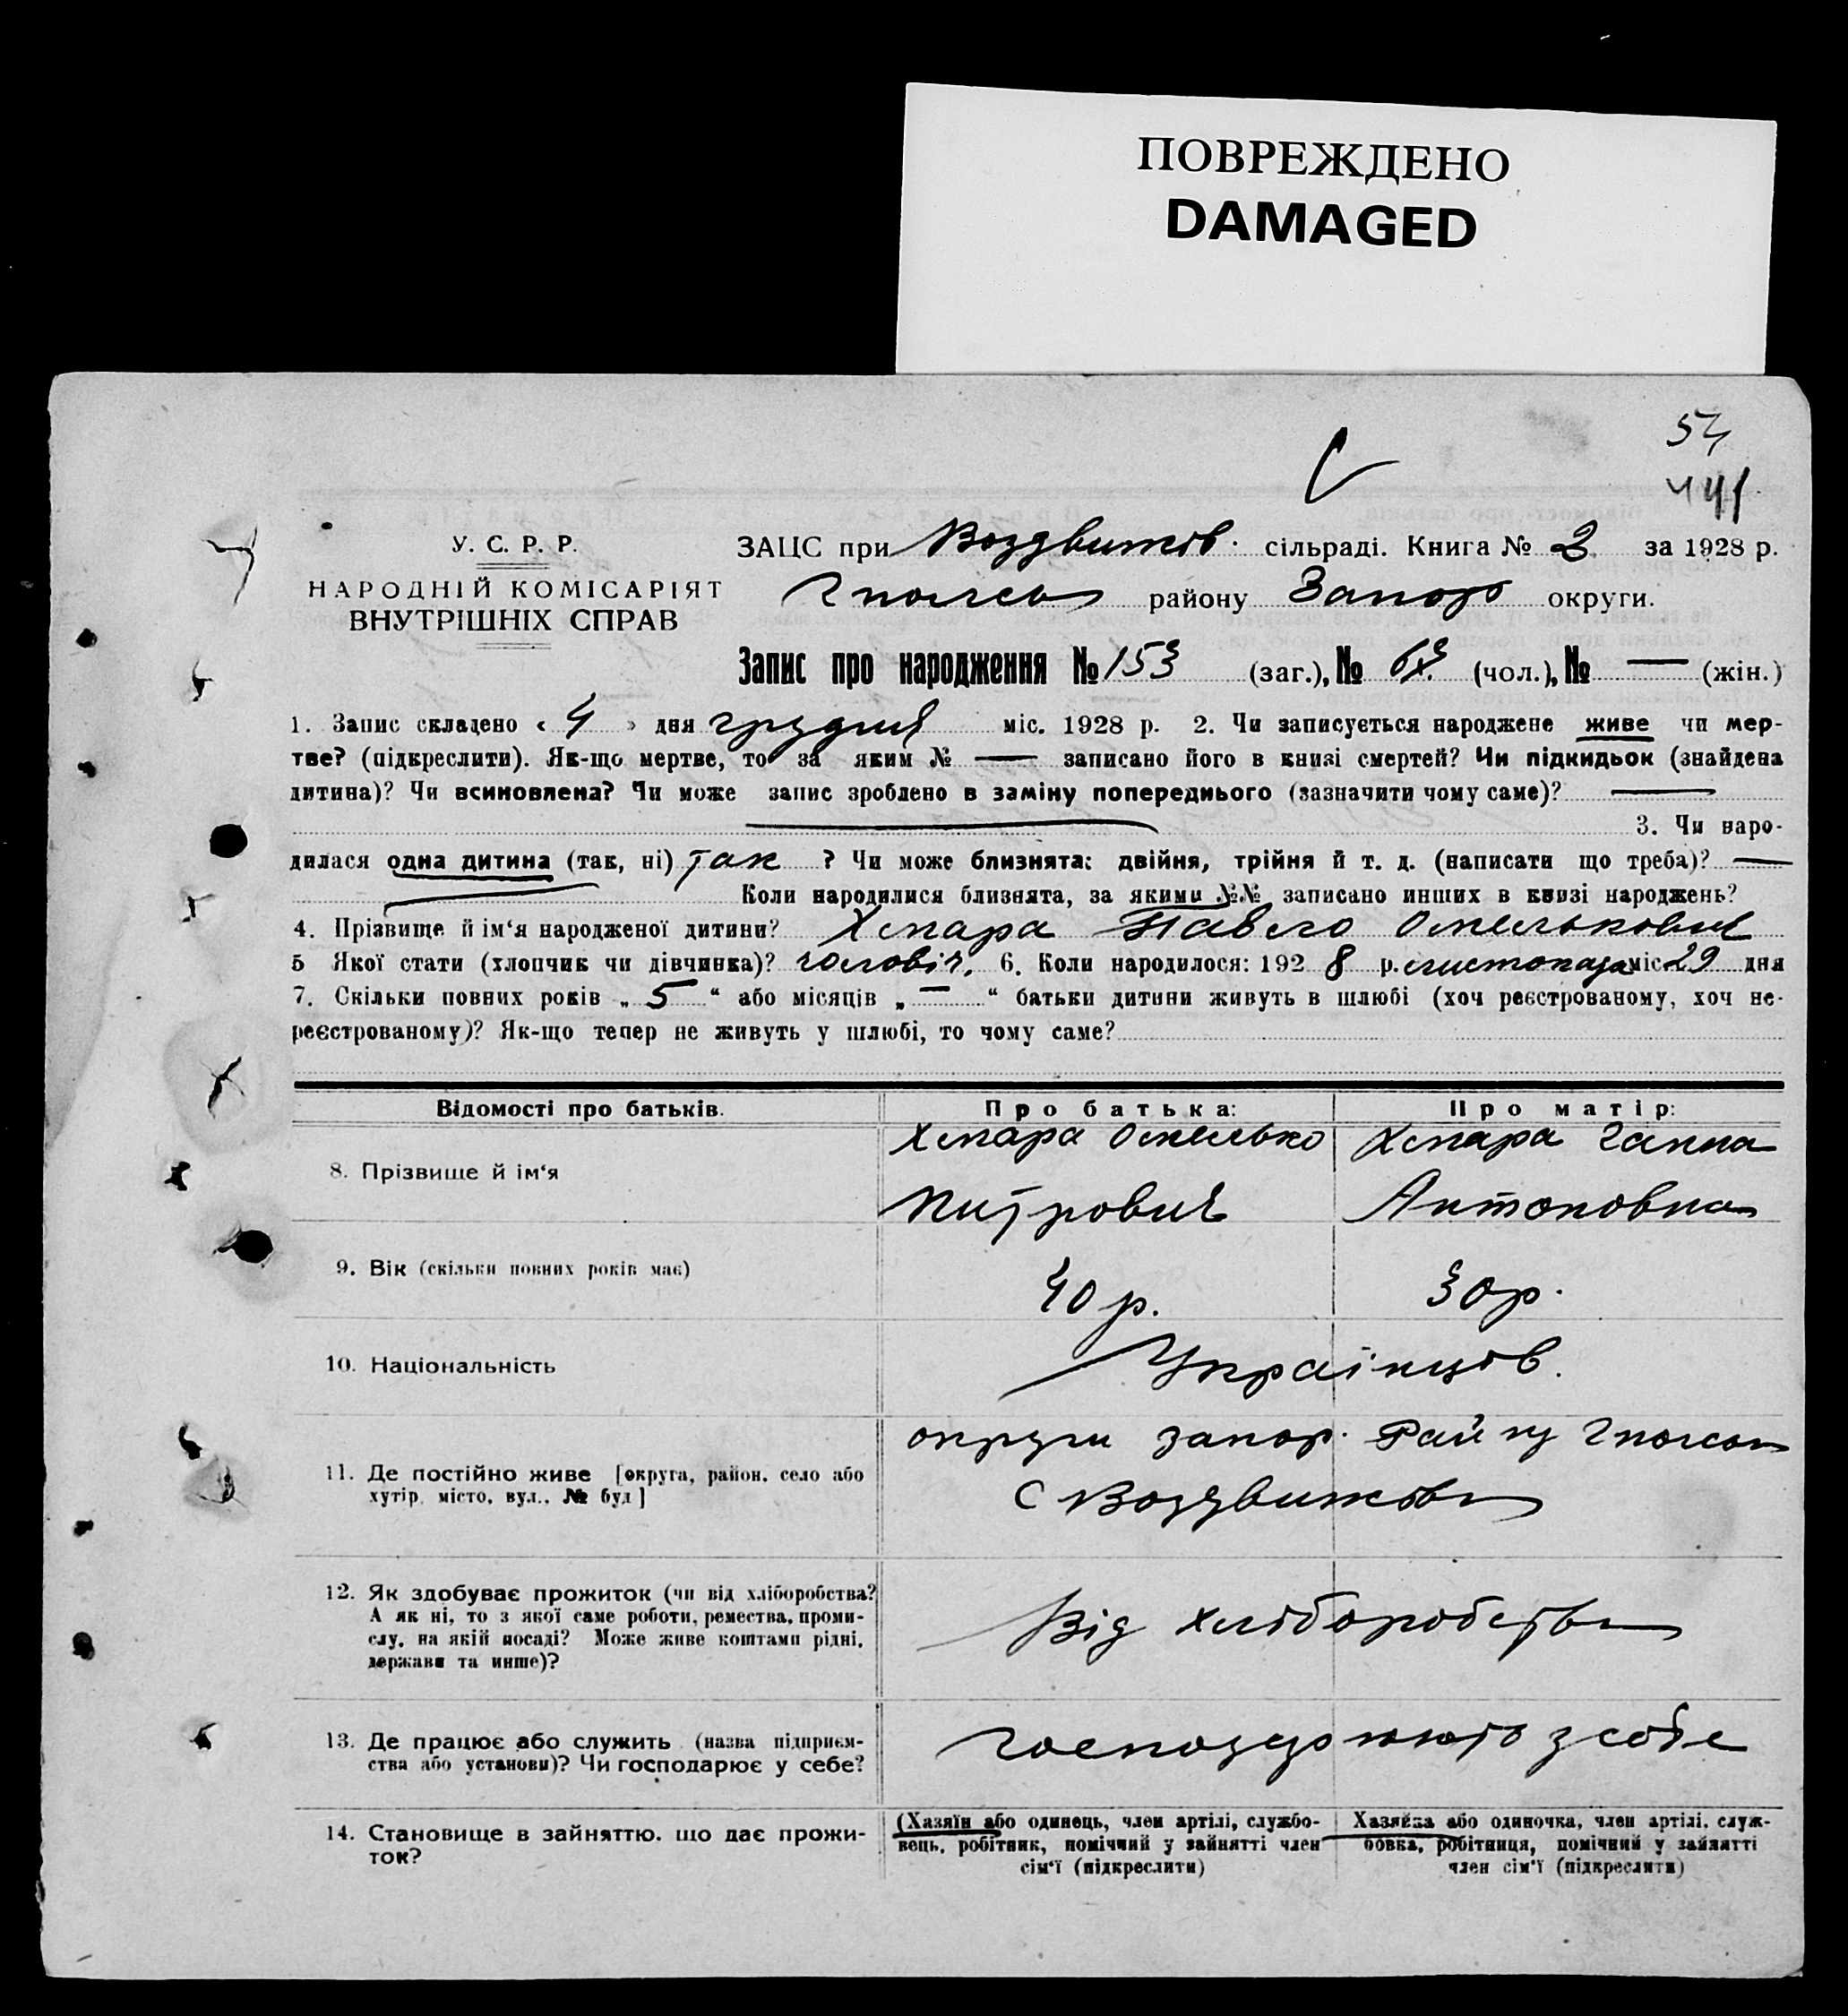 ПОВРЕЖДЕНО
DAMAGED
54
441
У. С. Р. Р.
НАРОДНІЙ КОМІСАРІЯТ
ВНУТРІШНІХ СПРАВ
ЗАЦС при Воздвижів. сільраді. Книга № 2 за 1928 р.
району Запор округи.
Запис про народження № 153 (заг.), № (чол.), № — (жін.)
1. Запис складено « 4 » дня грудня міс. 1928 р. 2. Чи записується народжене живе чи мер-
тве? (підкреслити). Як-що мертве, то за яким № — записано його в книзі смертей? Чи підкидьок (знайдена
дитина)? Чи всиновлена? Чи може запис зроблено в заміну попереднього (зазначити чому саме)? —
3. Чи наро-
дилася одна дитина (так, ні) так ? Чи може близнята: двійня, трійня й т. д. (написати що треба)? —
Коли народилися близнята, за якими №№ записано инших в книзі народжень?
4. Прізвище й ім'я народженої дитини? Хмара Павло Омелькович
5 Якої стати (хлопчик чи дівчинка)? чоловіч. 6. Коли народилося: 192 8 р. листопада міс. 29 дня
7. Скільки повних років „ 5 “ або місяців „ — “ батьки дитини живуть в шлюбі (хоч реєстрованому, хоч не-
реєстрованому)? Як-що тепер не живуть у шлюбі, то чому саме?
Відомості про батьків. Про батька: Про матір:
8. Прізвище й ім'я Хмара Омелько Хмара Ганна
Митрович Антоновна
9. Вік (скільки повних років має) 40 р. 30 р.
10. Національність Українців.
11. Де постійно живе [округа, район, село або хутір, місто, вул., № буд] округи запор. Рай ну
С Воздвижівка
12. Як здобуває прожиток (чи від хліборобства?
А як ні, то з якої саме роботи, ремества, проми-
слу, на якій посаді? Може живе коштами рідні,
держави та инше)?
Від хліборобства
13. Де працює або служить (назва підприєм-
ства або установи)? Чи господарює у себе?
господарюють у себе
14. Становище в зайняттю, що дає прожи-
ток?
(Хазяїн або одинець, член артілі, службо-
вець, робітник, помічний у зайнятті член
сім'ї (підкреслити)
Хазяйка або одиночка, член артілі, служ-
бовка, робітниця, помічний у зайнятті
член сім'ї (підкреслити)